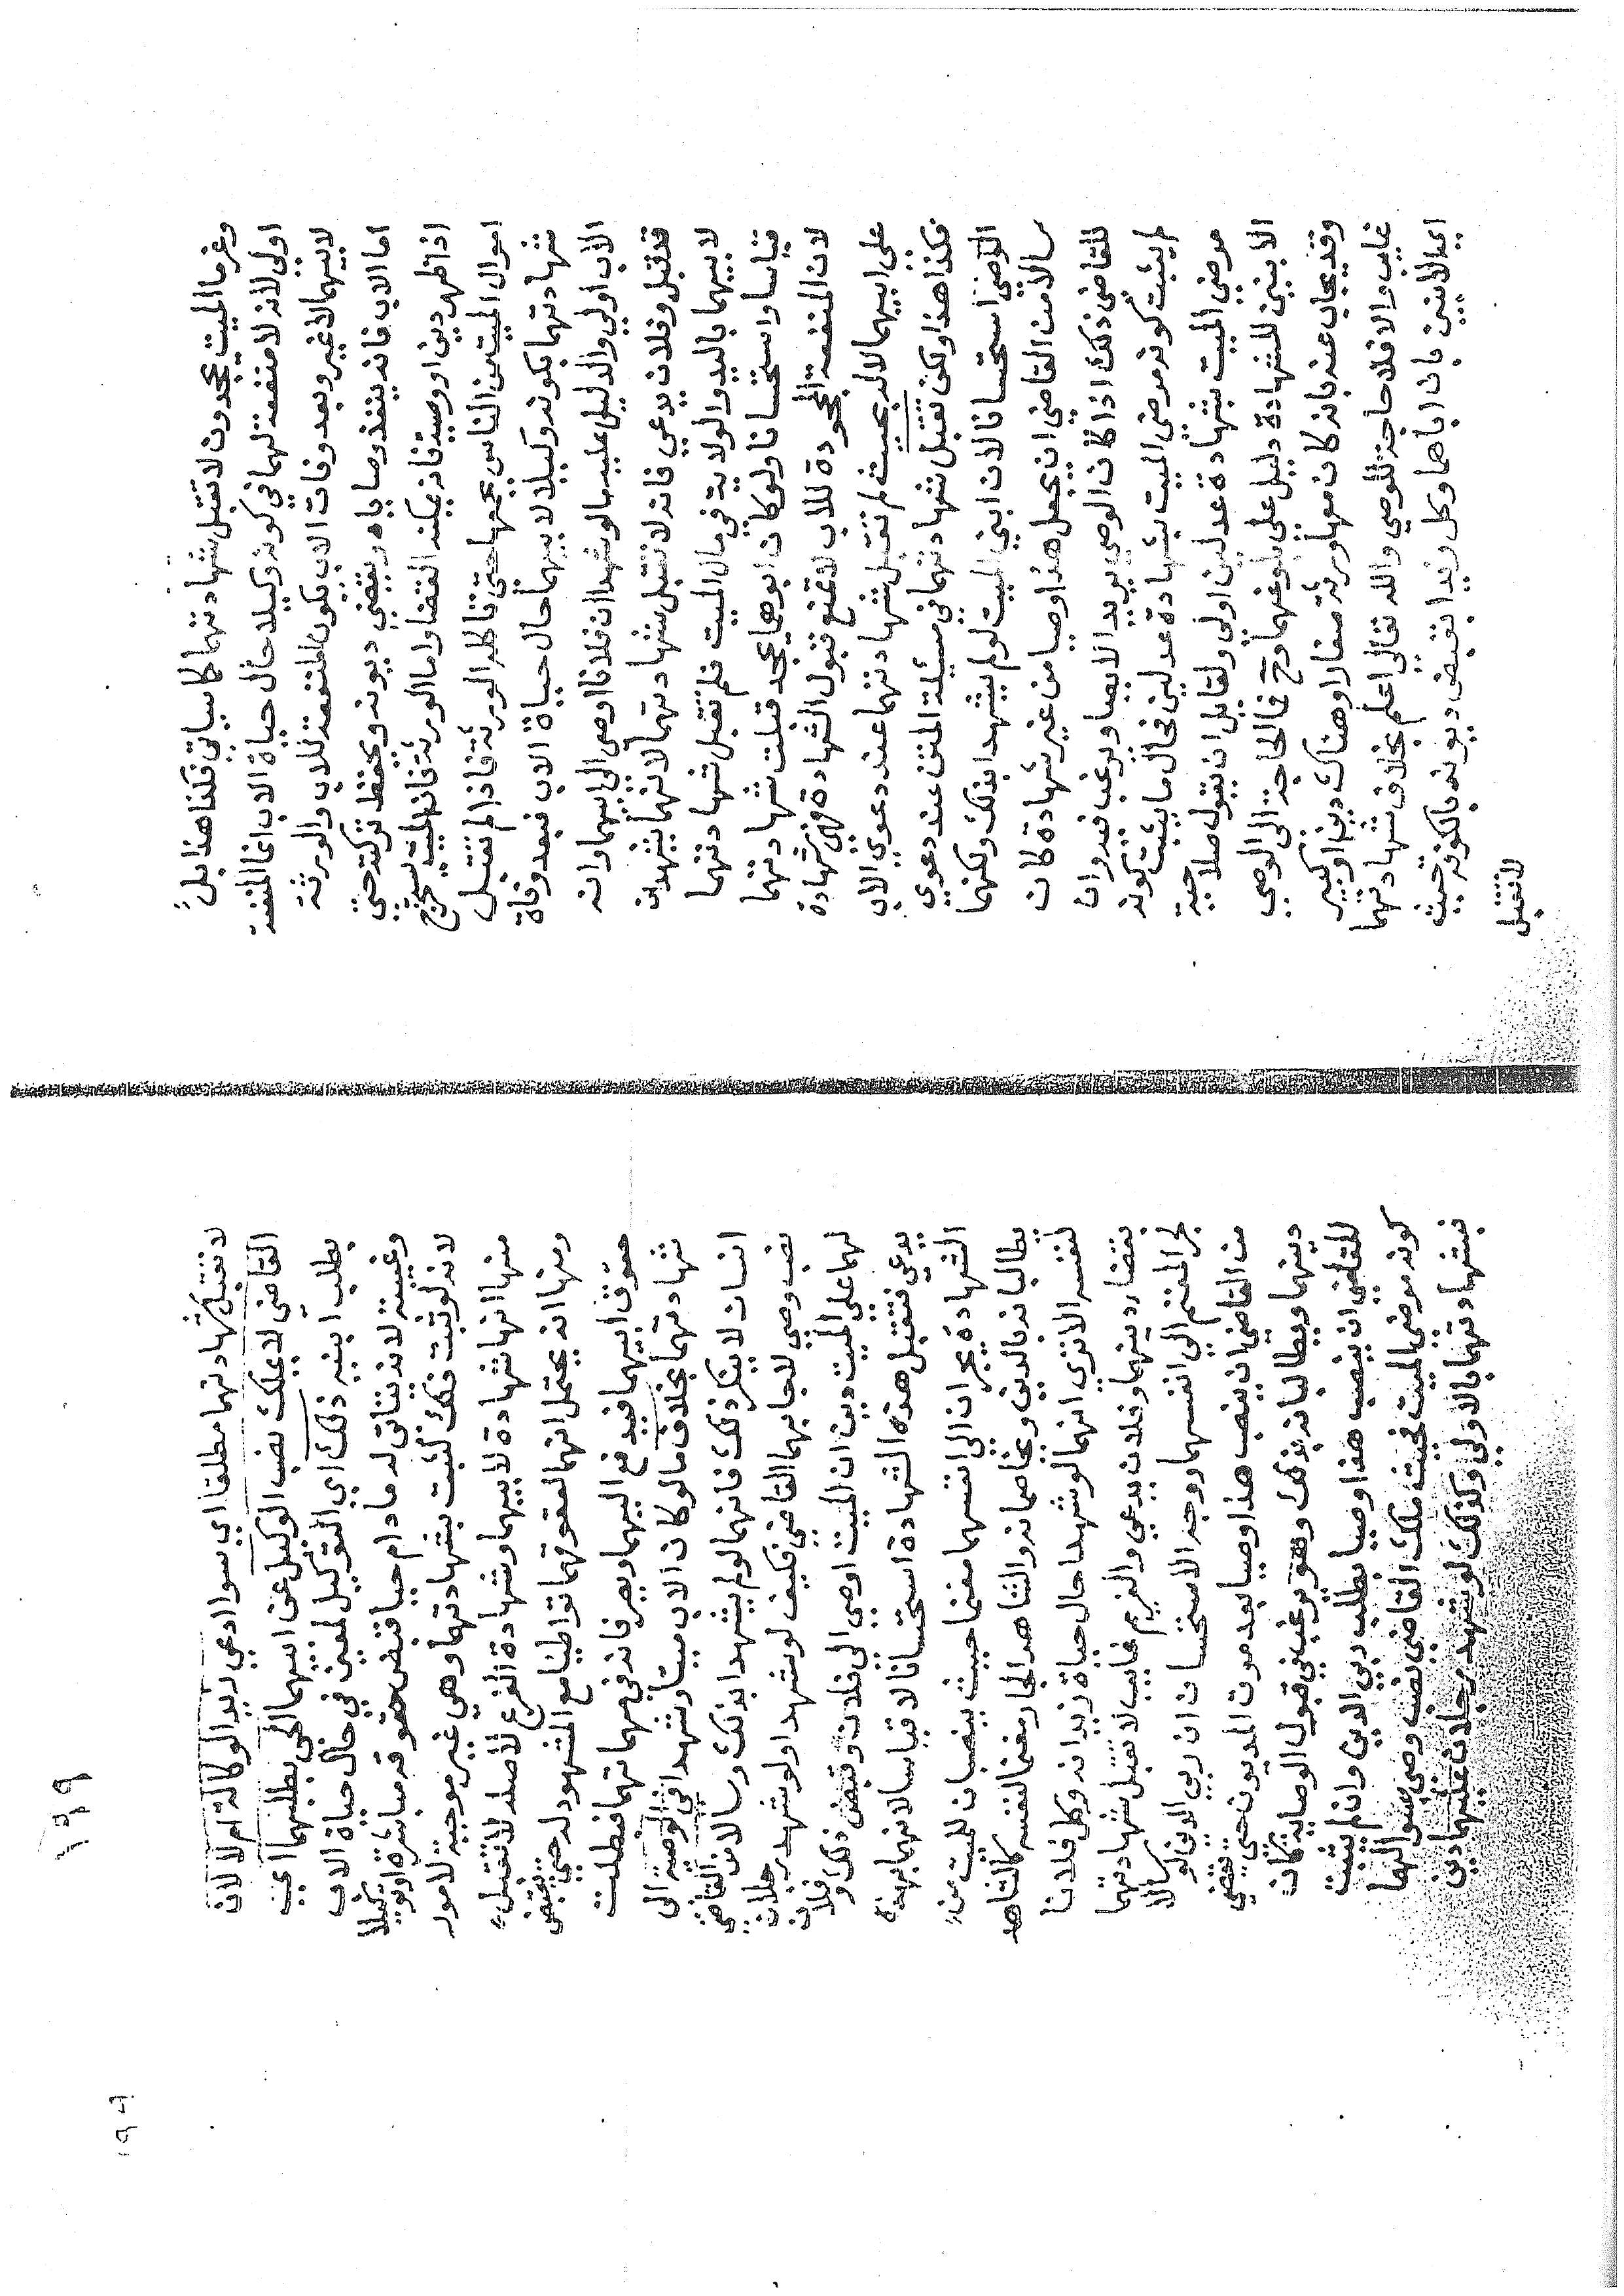 وغرما الميت يجحدون لا تقبل شهادتهما كما سياتي فكذا هذا بل
اولي لانه لا منفعة لهما في كونه وكيلا حال حياة الاب انما المنفعة
لابيهما لا غير وبعد وفات الاب يكون المنفعة للاب والورثة
اما الاب فانه ينفذ وصاياه ويقضي ديونه ويحفظ تركته حتي
اذا ظهر دين او وصية فانه يمكنه القضا واما الورثة فان الميت يستخرج
اموال الميت من الناس يجمعها حتي تاكله الورثة فاذا لم تقبل
شهادتهما بكونه وكيلا لابيهما حال حياة الاب فبعد وفاة
الاب اولي والدليل عليه ما لو شهدا ان فلانا اوصي الي ابيهما وانه
قد قبل وفلان يدعي فانه لا تقبل شهادتهما لانهما يشهدان
لابيهما باليد والولاية في مال الميت فلم تقبل شهادتهما
قياسا واستحسانا ولو كان ابوهما يجحد قبلت شهادتهما
لان المنفعة المجحودة للاب لا تمنع قبول الشهادة فهي شهادة
علي ابيهما لا له بحيث لم تقبل شهادتهما عند دعوي الاب
فكذا هذا ولكن تقبل شهادتهما في مسيلة المتن عند دعوي
الوصي استحسانا لان ابني الميت لو لم يشهدا بذلك ولكنهما
سالا من القاضي ان يجعل هذا وصيا من غير شهادة كان
للقاضي ذلك اذا كان الوصي يريد الايصا ويرغب فيه وان
لم يثبت كونه موصي الميت بشهادة عدلين فحال ما يثبت كونه
موصي الميت بشهادة عدلين اولي ولقايل ان يقول صلاحية
الابنين للشهادة دليل علي بلوغهما وح فما الحاجة الي الوصي
وقد يجاب عنه بانه كان معها ورثة صغار او هناك دين او كبير
غايب والا فلا حاجة للوصي والله تعالي اعلم بخلاف شهادتهما
اي الابنين بان اباهما وكل زيدا بقبض ديونه بالكوفة حيث
لا تقبل
لا تقبل شهادتهما مطلقا اي سوا ادعي زيد الوكالة ام لا لان
القاضي لا يملك نصب الوكيل عن ابيهما الحي بطلبهما اي
بطلب ابنيه ذلك اي التوكيل لمعني في حال حياة الاب
وغيبته لانه يتاتي له ما دام حيا قبض حقوقه مباشرة او توكيلا
لانه لو ثبت ذلك لثبت بشهادتهما وهي غير موجبة لامور
منها انها شهادة لابيهما وشهادة الفرع لاصله لا تقبل
ومنها انه يحتمل انهما لعقوقهما تواطيا مع المشهود له حتي يقبض
حقوق ابيهما فيدفع اليهما ويصرفانه في مهماتهما فبطلت
شهادتهما بخلاف ما لو كان الاب ميتا وشهدا في الوصية الي
انسان لا ينكر ذلك فانهما لو لم يشهدا بذلك وسالا من القاضي
نصب وصي لاجابهما القاضي فكيف لو شهدا ولو شهد رجلان
لهما علي الميت دين ان الميت اوصي الي فلان وقبض ذلك او فلان
يدعي فتقبل هذه الشهادة استحسانا لا قياسا لانهما بهذه
الشهادة يجران الي انفسهما مغنما حيث ينصبان للميت من
يطالبانه بالدين ويخاصمانه والشاهد الجار مغنما لنفسه كالشاهد
لنفسه الا تري انهما لو شهدا حال حياة زيد انه وكل فلانا
بقضا دينهما وفلان يدعي والغريم غايب لا تقبل شهادتهما
لجر المغنم الي انفسهما ووجه الاستحسان ان ربي الدين لو سالا
من القاضي ان ينصب هذا وصيا بعد موت المديون حتي يقضي
دينهما ويطالبانه بذلك وهو يرغب في قبول الوصاية كان
للقاضي ان ينصب هذا وصيا بطلب ربي الدين وان لم يثبت
كونه موصي الميت فحيث ملك القاضي نصب وصي بسوالهما
فبشهادتهما بالاولي وكذلك لو شهد رجلان عليهما دين
١٩٩